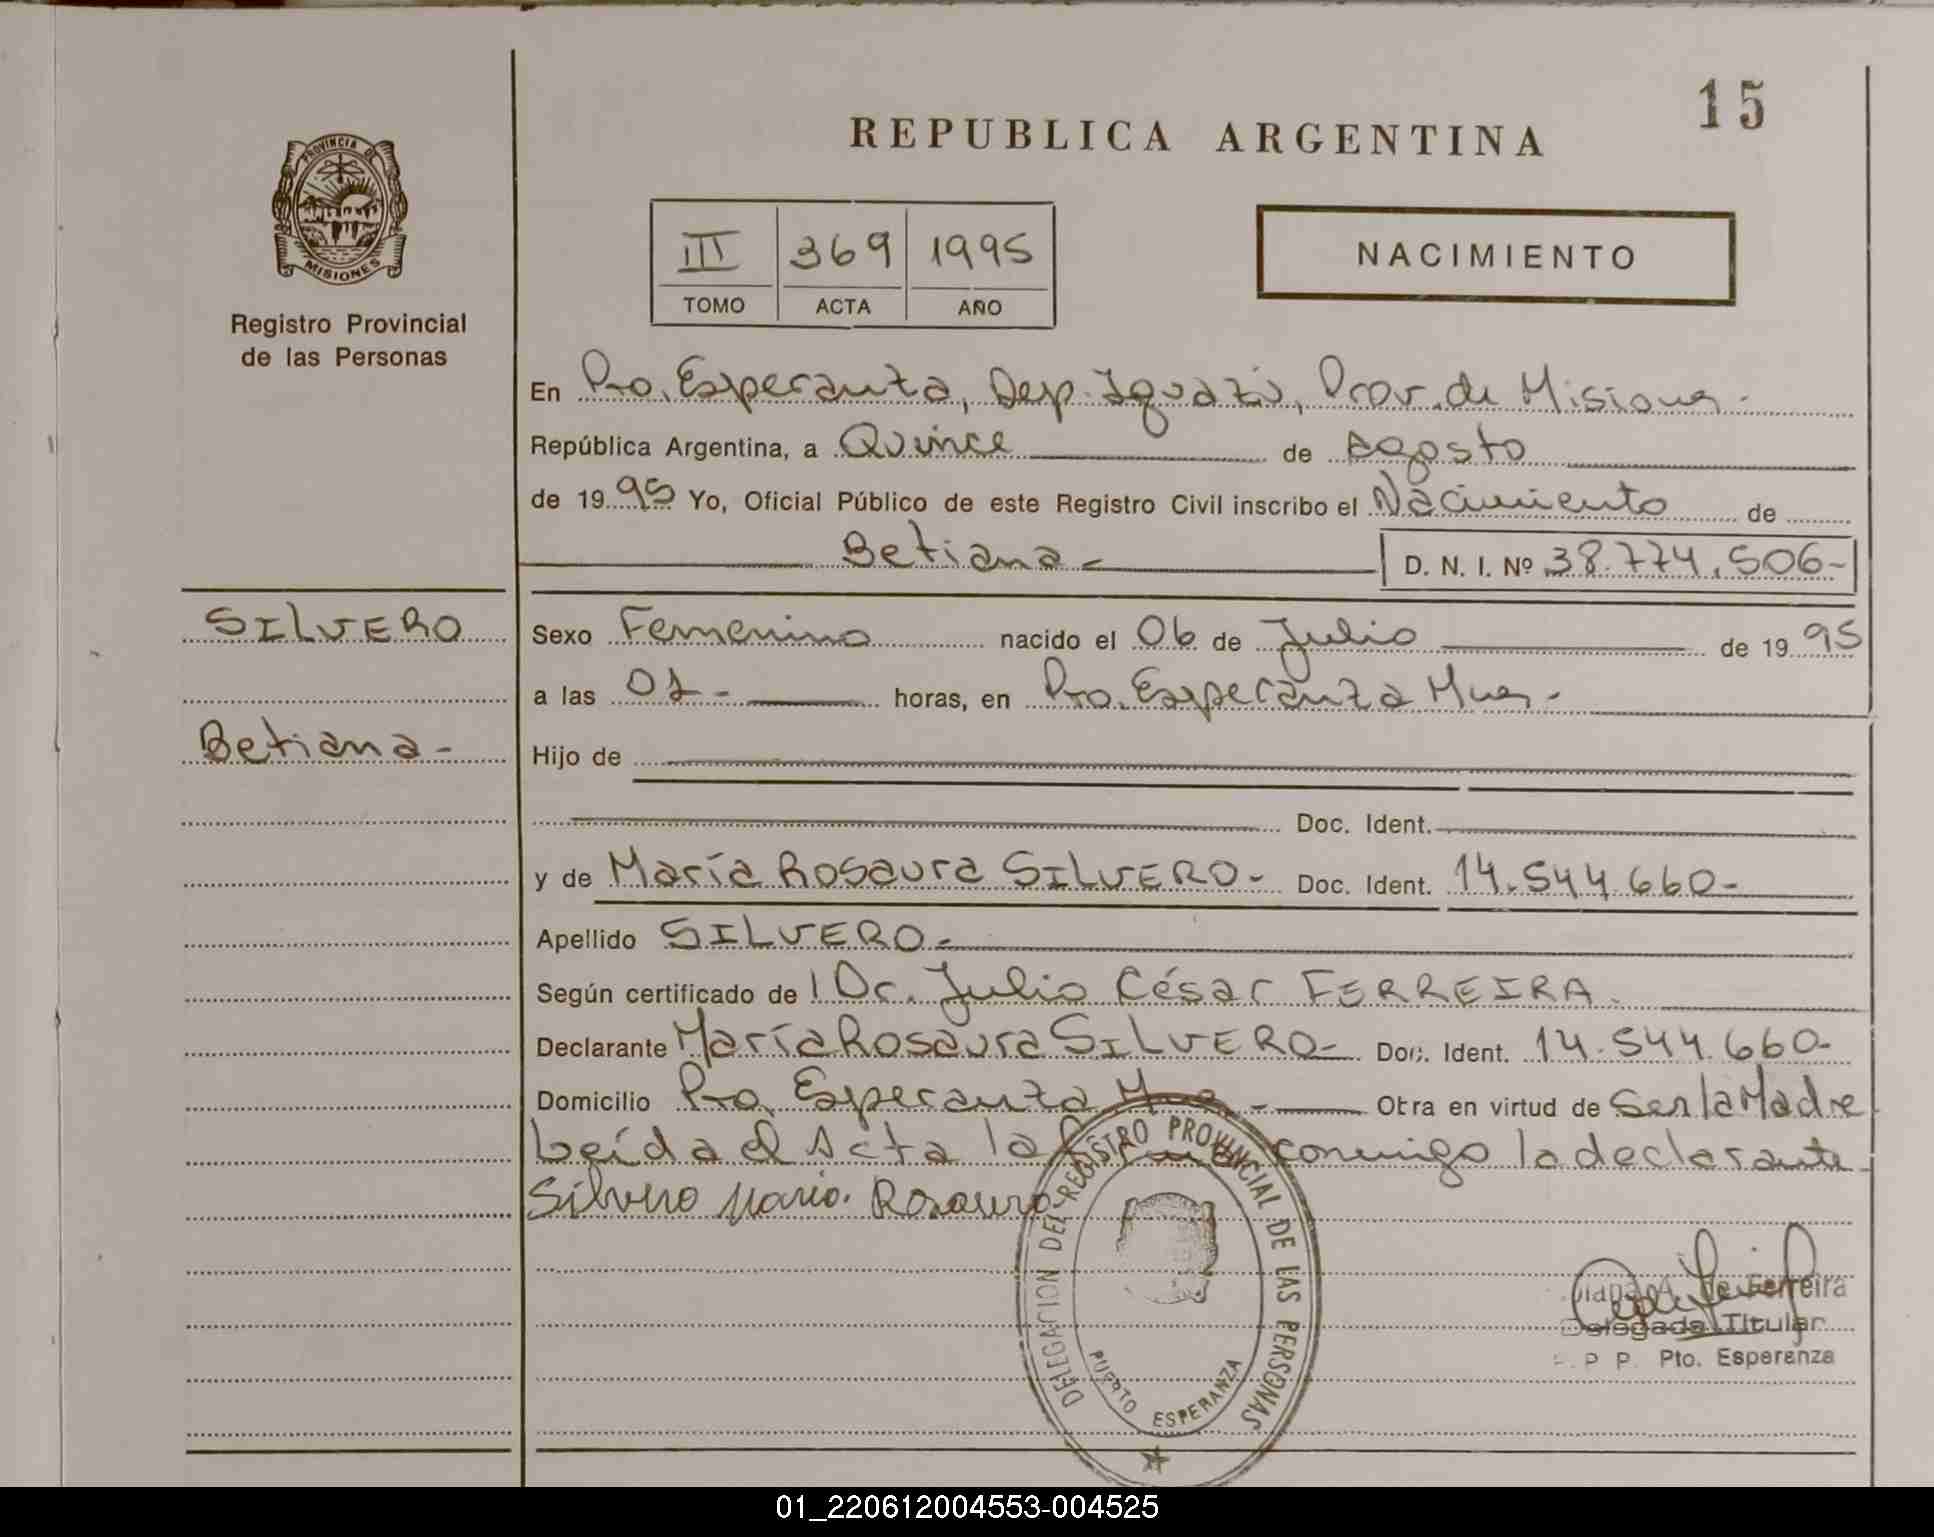 15
REPUBLICA ARGENTINA
PROVINCIA DE
MISIONES
Registro Provincial
de las Personas
III 369 1995
TOMO ACTA AÑO
NACIMIENTO
En Pto. Esperanza, Dep. Iguazú, Prov. de Misiones.
República Argentina, a Quince de Agosto
de 1995 Yo, Oficial Público de este Registro Civil inscribo el Nacimiento de
Betiana - D. N. I. Nº 38.774.506-
SILVERO
Betiana -
Sexo Femenino nacido el 06 de Julio de 1995
a las 01 - horas, en Pto. Esperanza Mnes -
Hijo de
Doc. Ident.
y de María Rosaura SILVERO - Doc. Ident. 14.544.660-
Apellido SILVERO -
Según certificado de Dr. Julio César FERREIRA.
Declarante María Rosaura SILVERO - Doc. Ident. 14.544.660-
Domicilio Pto. Esperanza Mnes - Obra en virtud de Ser la Madre
Leída el Acta la firma conmigo la declarante
Silvero Maria Rosaura
DELEGACION DEL REGISTRO PROVINCIAL DE LAS PERSONAS
PUERTO ESPERANZA
de Ferreira
Delegada Titular
P P Pto. Esperanza
01_220612004553-004525